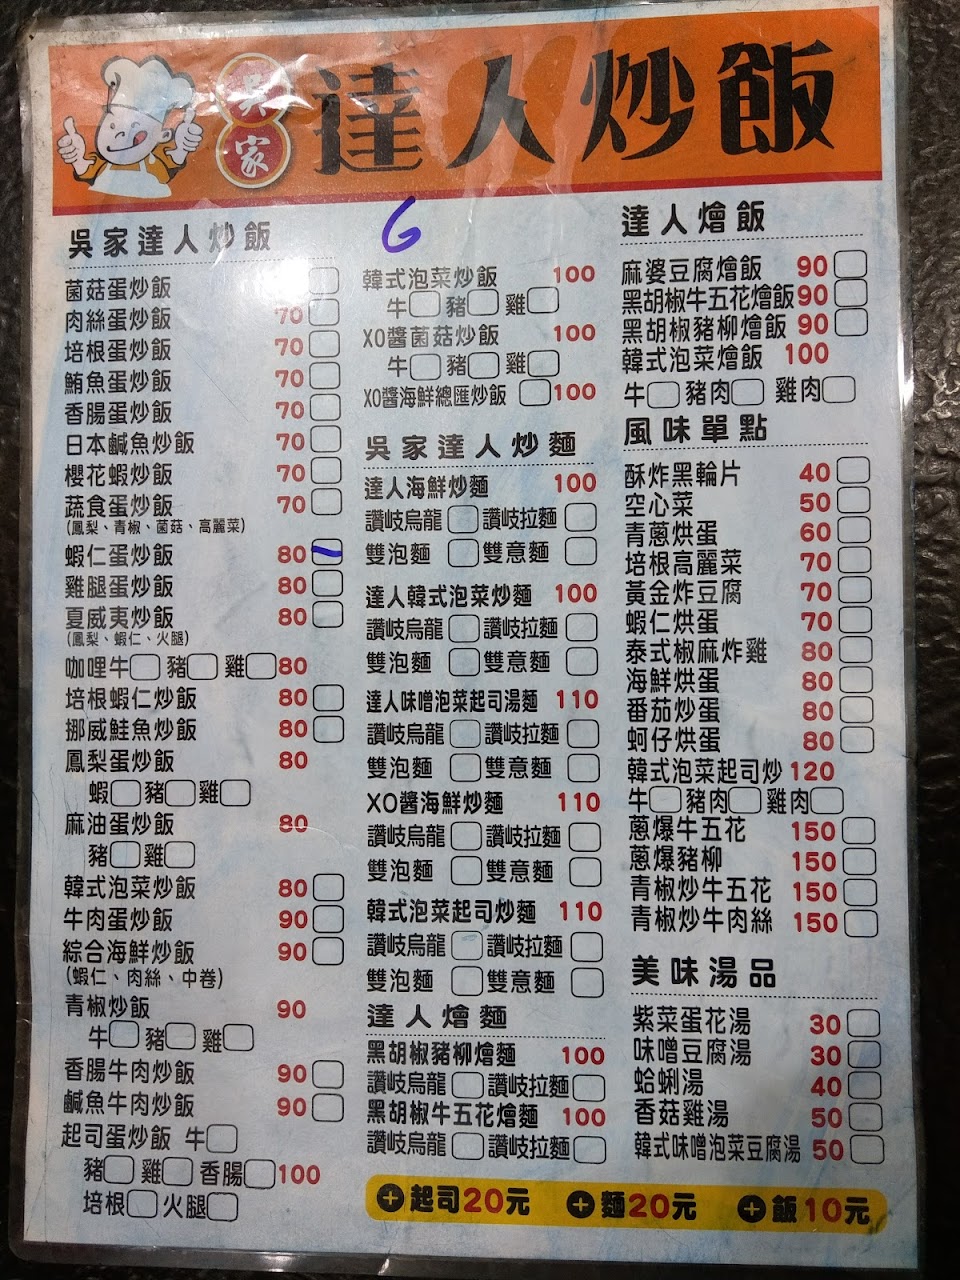 吳家 達人炒飯
6
吳家達人炒飯
菌菇蛋炒飯
肉絲蛋炒飯 70
培根蛋炒飯 70
鮪魚蛋炒飯 70
香腸蛋炒飯 70
日本鹹魚炒飯 70
櫻花蝦炒飯 70
蔬食蛋炒飯 70
(鳳梨、青椒、菌菇、高麗菜)
蝦仁蛋炒飯 80
雞腿蛋炒飯 80
夏威夷炒飯 80
(鳳梨、蝦仁、火腿)
咖哩牛 豬 雞 80
培根蝦仁炒飯 80
挪威鮭魚炒飯 80
鳳梨蛋炒飯 80
蝦 豬 雞
麻油蛋炒飯 80
豬 雞
韓式泡菜炒飯 80
牛肉蛋炒飯 90
綜合海鮮炒飯 90
(蝦仁、肉絲、中卷)
青椒炒飯 90
牛 豬 雞
香腸牛肉炒飯 90
鹹魚牛肉炒飯 90
起司蛋炒飯 牛
豬 雞 香腸 100
培根 火腿
韓式泡菜炒飯 100
牛 豬 雞
XO醬菌菇炒飯 100
牛 豬 雞
XO醬海鮮總匯炒飯 100
吳家達人炒麵
達人海鮮炒麵 100
讚岐烏龍 讚岐拉麵
雙泡麵 雙意麵
達人韓式泡菜炒麵 100
讚岐烏龍 讚岐拉麵
雙泡麵 雙意麵
達人味噌泡菜起司湯麵 110
讚岐烏龍 讚岐拉麵
雙泡麵 雙意麵
XO醬海鮮炒麵 110
讚岐烏龍 讚岐拉麵
雙泡麵 雙意麵
韓式泡菜起司炒麵 110
讚岐烏龍 讚岐拉麵
雙泡麵 雙意麵
達人燴麵
黑胡椒豬柳燴麵 100
讚岐烏龍 讚岐拉麵
黑胡椒牛五花燴麵 100
讚岐烏龍 讚岐拉麵
達人燴飯
麻婆豆腐燴飯 90
黑胡椒牛五花燴飯 90
黑胡椒豬柳燴飯 90
韓式泡菜燴飯 100
牛 豬肉 雞肉
風味單點
酥炸黑輪片 40
空心菜 50
青蔥烘蛋 60
培根高麗菜 70
黃金炸豆腐 70
蝦仁烘蛋 70
泰式椒麻炸雞 80
海鮮烘蛋 80
番茄炒蛋 80
蚵仔烘蛋 80
韓式泡菜起司炒 120
牛 豬肉 雞肉
蔥爆牛五花 150
蔥爆豬柳 150
青椒炒牛五花 150
青椒炒牛肉絲 150
美味湯品
紫菜蛋花湯 30
味噌豆腐湯 30
蛤蜊湯 40
香菇雞湯 50
韓式味噌泡菜豆腐湯 50
+起司20元 +麵20元 +飯10元